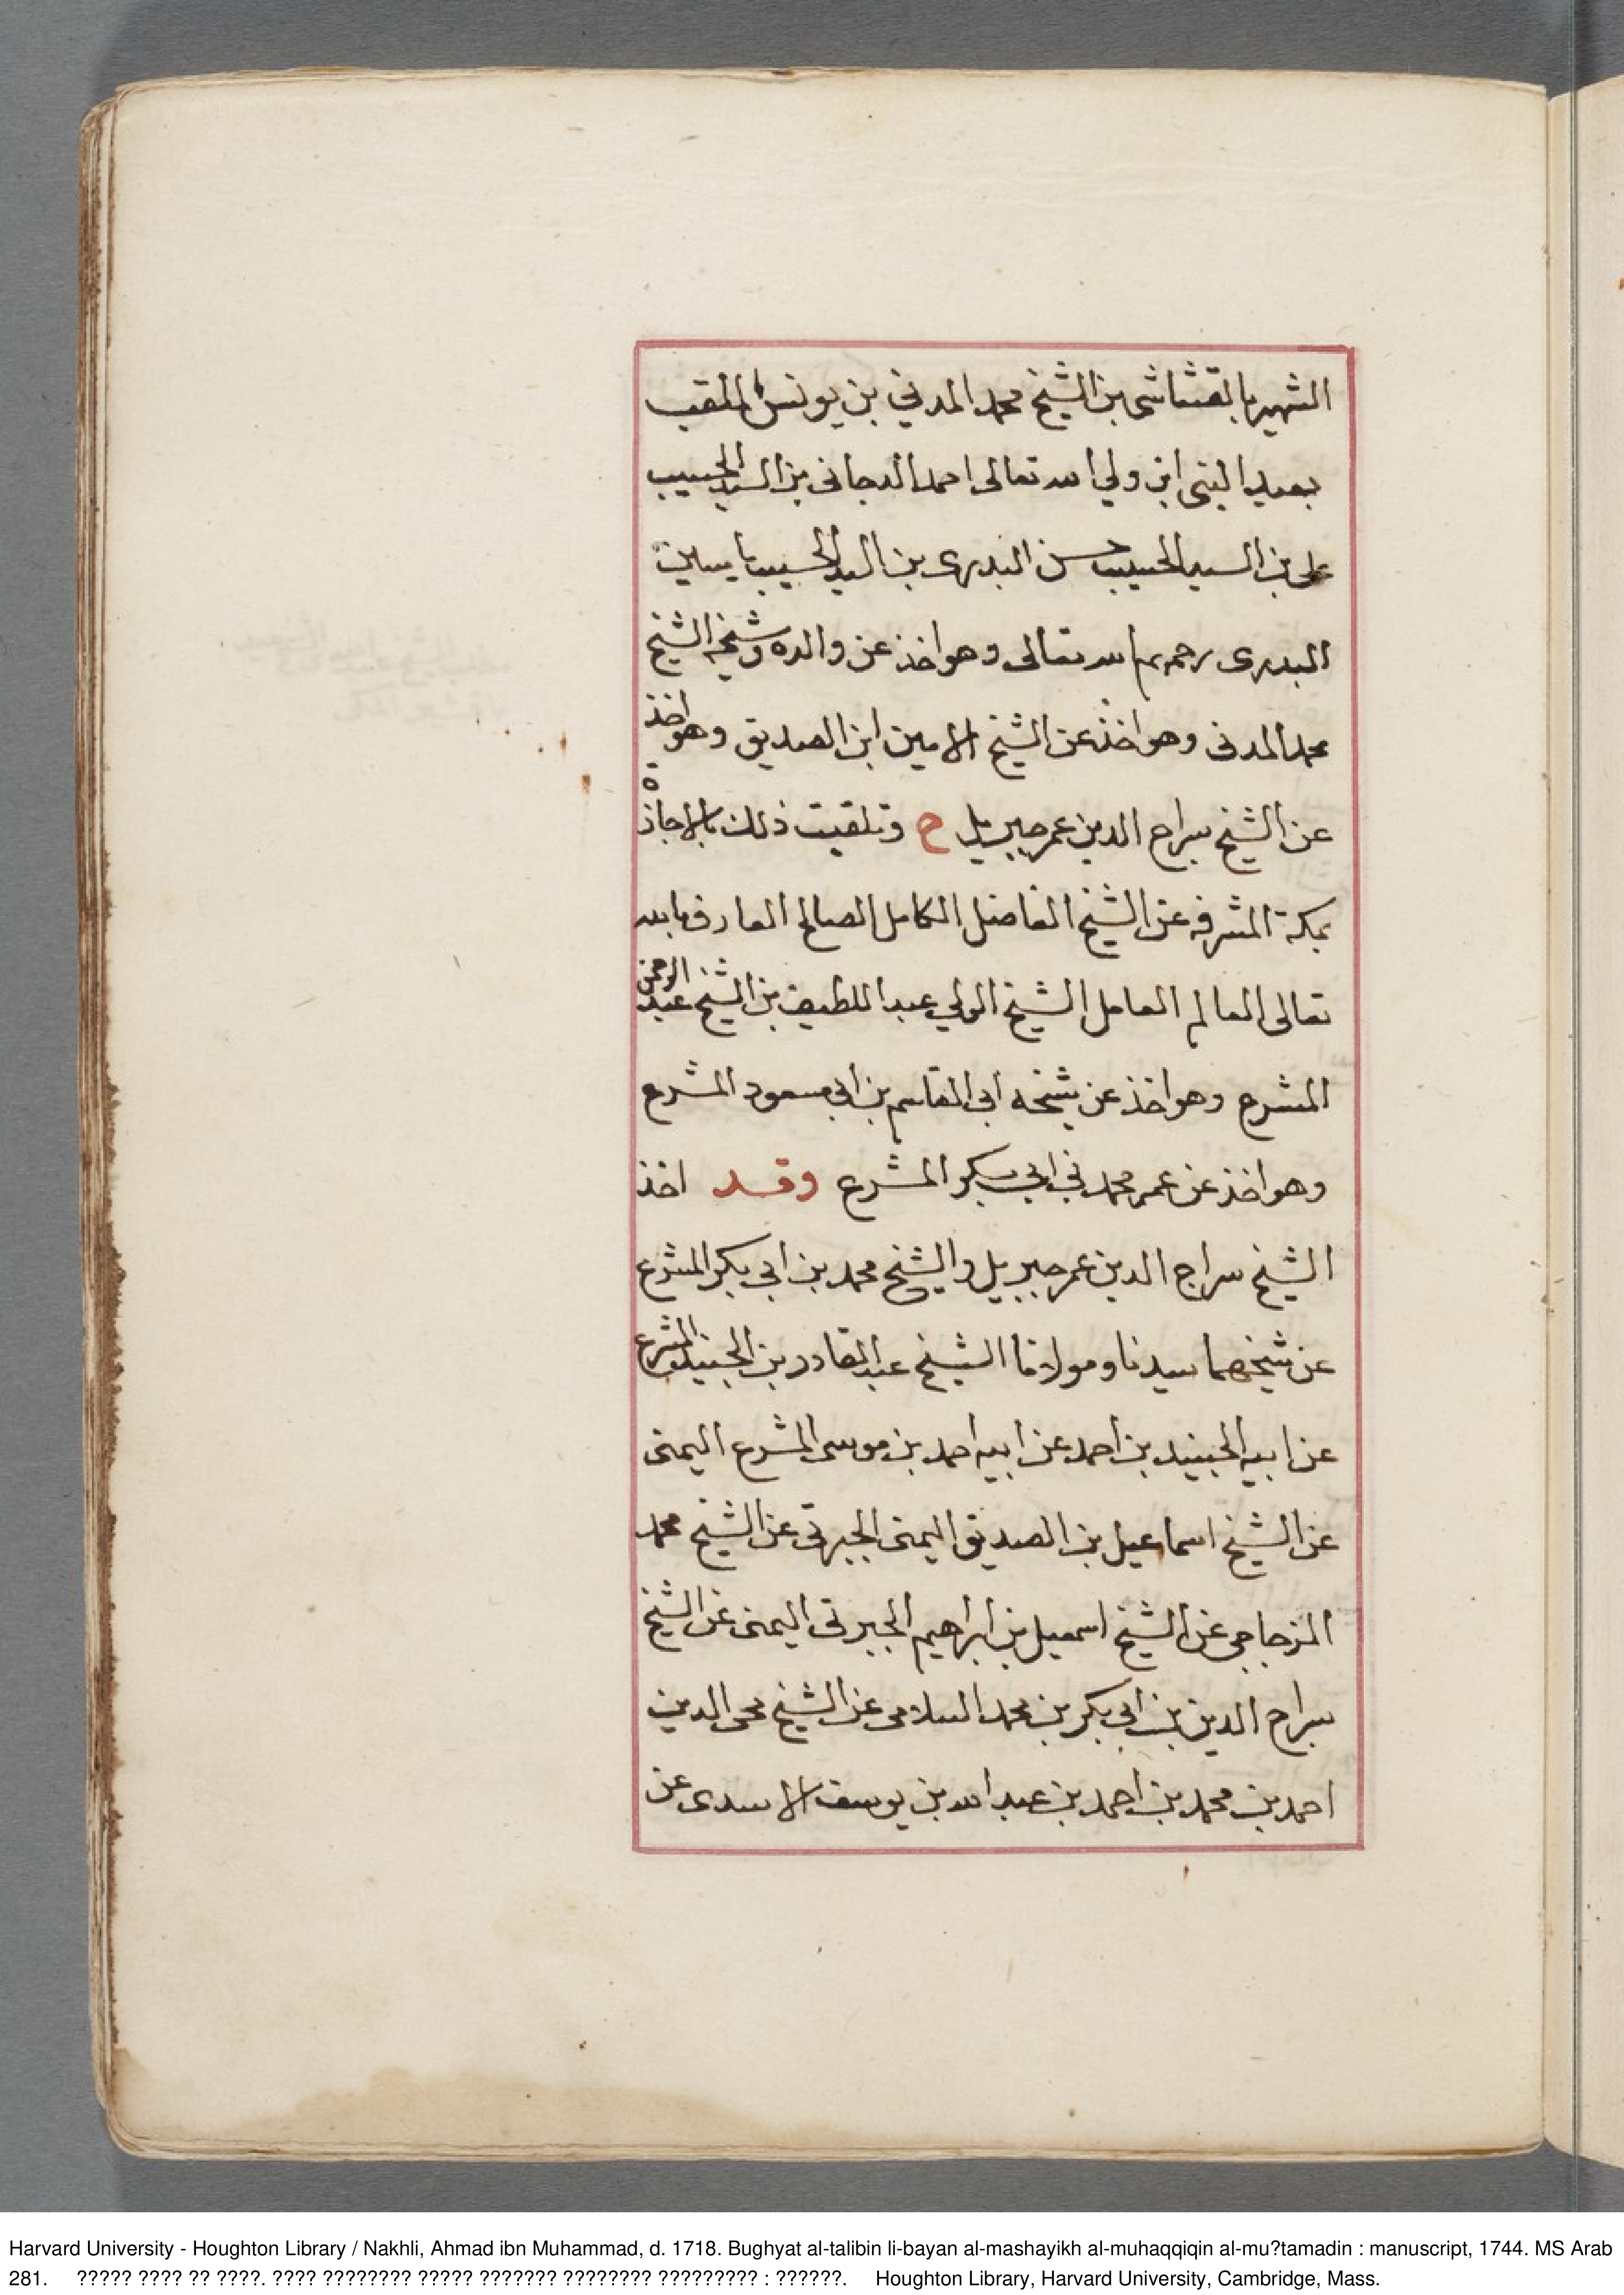 الشهير بالقشاشي بن الشيخ محمد المدني بن يونس الملقب
بعبد النبي ابن ولي الله تعالى احمد الدجاني بن السيد الحسيب
علي بن السيد الحسيب حسن البدري بن السيد الحسيب ياسين
البدري رحمهم الله تعالى وهو اخذ عن والده وشيخه الشيخ
محمد المدني وهو اخذ عن الشيخ الامين ابن الصديق وهو اخذ
عن الشيخ سراج الدين عمر جبريل ح وتلقيت ذلك بالاجازة
بمكة المشرفه عن الشيخ الفاضل الكامل الصالح العارف بالله
تعالى العالم العامل الشيخ الولي عبد اللطيف بن الشيخ عبد الرحمن
المشرع وهو اخذ عن شيخه ابي القاسم بن ابي مسعود المشرع
وهو اخذ عن عمر محمد بن ابي بكر المشرع وقد اخذ
الشيخ سراج الدين عمر جبريل والشيخ محمد بن ابي بكر المشرع
عن شيخهما سيدنا ومولانا الشيخ عبد القادر بن الجنيد المشرع
عن ابيه الجنيد بن احمد عن ابيه احمد بن موسى المشرع اليمني
عن الشيخ اسماعيل بن الصديق اليمني الجبرتي عن الشيخ محمد
المزجاجي عن الشيخ اسمعيل بن ابراهيم الجبرتي اليمني عن الشيخ
سراج الدين بن ابي بكر بن محمد السلامي عن الشيخ محي الدين
احمد بن محمد بن احمد بن عبد الله بن يوسف الاسدي عن
Harvard University - Houghton Library / Nakhli, Ahmad ibn Muhammad, d. 1718. Bughyat al-talibin li-bayan al-mashayikh al-muhaqqiqin al-mu?tamadin : manuscript, 1744. MS Arab
281. ????? ???? ?? ????. ???? ???????? ????? ??????? ???????? ????????? : ??????. Houghton Library, Harvard University, Cambridge, Mass.